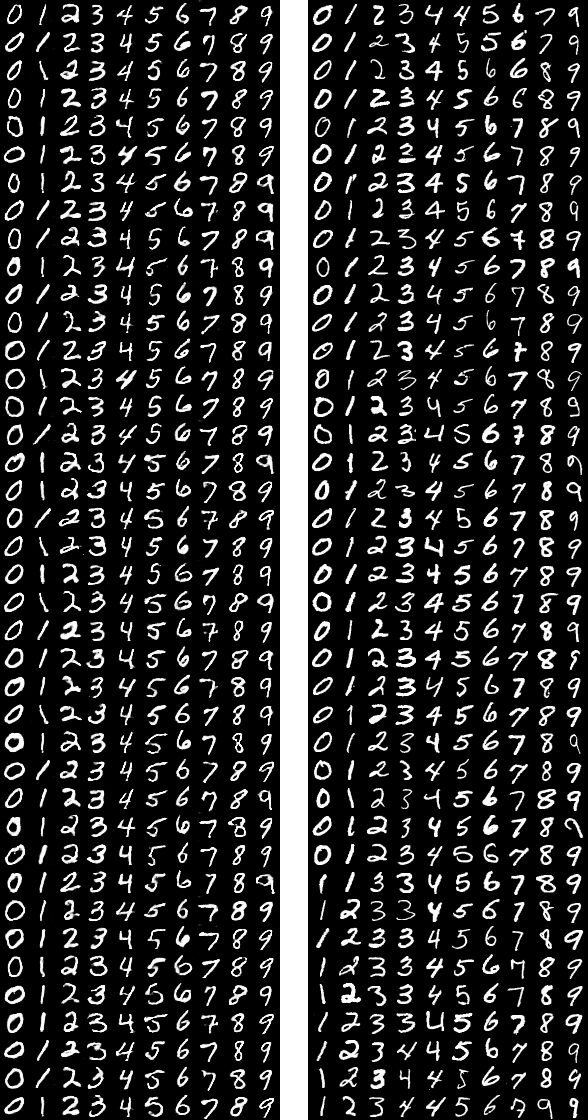 0 1 2 3 4 5 6 7 8 9
0 1 2 3 4 5 6 7 8 9
0 1 2 3 4 5 6 7 8 9
0 1 2 3 4 5 6 7 8 9
0 1 2 3 4 5 6 7 8 9
0 1 2 3 4 5 6 7 8 9
0 1 2 3 4 5 6 7 8 9
0 1 2 3 4 5 6 7 8 9
0 1 2 3 4 5 6 7 8 9
0 1 2 3 4 5 6 7 8 9
0 1 2 3 4 5 6 7 8 9
0 1 2 3 4 5 6 7 8 9
0 1 2 3 4 5 6 7 8 9
0 1 2 3 4 5 6 7 8 9
0 1 2 3 4 5 6 7 8 9
0 1 2 3 4 5 6 7 8 9
0 1 2 3 4 5 6 7 8 9
0 1 2 3 4 5 6 7 8 9
0 1 2 3 4 5 6 7 8 9
0 1 2 3 4 5 6 7 8 9
0 1 2 3 4 5 6 7 8 9
0 1 2 3 4 5 6 7 8 9
0 1 2 3 4 5 6 7 8 9
0 1 2 3 4 5 6 7 8 9
0 1 2 3 4 5 6 7 8 9
0 1 2 3 4 5 6 7 8 9
0 1 2 3 4 5 6 7 8 9
0 1 2 3 4 5 6 7 8 9
0 1 2 3 4 5 6 7 8 9
0 1 2 3 4 5 6 7 8 9
0 1 2 3 4 5 6 7 8 9
0 1 2 3 4 5 6 7 8 9
0 1 2 3 4 5 6 7 8 9
0 1 2 3 4 5 6 7 8 9
0 1 2 3 4 5 6 7 8 9
0 1 2 3 4 5 6 7 8 9
0 1 2 3 4 5 6 7 8 9
0 1 2 3 4 5 6 7 8 9
0 1 2 3 4 5 6 7 8 9
0 1 2 3 4 5 6 7 8 9
0 1 2 3 4 4 5 6 7 9
0 1 2 3 4 5 5 6 7 9
0 1 2 3 4 5 6 6 8 9
0 1 2 3 4 5 6 6 8 9
0 1 2 3 4 5 6 7 8 9
0 1 2 3 4 5 6 7 8 9
0 1 2 3 4 5 6 7 8 9
0 1 2 3 4 5 6 7 8 9
0 1 2 3 4 5 6 7 8 9
0 1 2 3 4 5 6 7 8 9
0 1 2 3 4 5 6 7 8 9
0 1 2 3 4 5 6 7 8 9
0 1 2 3 4 5 6 7 8 9
0 1 2 3 4 5 6 7 8 9
0 1 2 3 4 5 6 7 8 9
0 1 2 3 4 5 6 7 8 9
0 1 2 3 4 5 6 7 8 9
0 1 2 3 4 5 6 7 8 9
0 1 2 3 4 5 6 7 8 9
0 1 2 3 4 5 6 7 8 9
0 1 2 3 4 5 6 7 8 9
0 1 2 3 4 5 6 7 8 9
0 1 2 3 4 5 6 7 8 9
0 1 2 3 4 5 6 7 8 9
0 1 2 3 4 5 6 7 8 9
0 1 2 3 4 5 6 7 8 9
0 1 2 3 4 5 6 7 8 9
0 1 2 3 4 5 6 7 8 9
0 1 2 3 4 5 6 7 8 9
0 1 2 3 4 5 6 7 8 9
0 1 2 3 4 5 6 7 8 9
1 1 3 3 4 5 6 7 8 9
1 2 3 3 4 5 6 7 8 9
1 2 3 3 4 5 6 7 8 9
1 2 3 3 4 5 6 7 8 9
1 2 3 3 4 5 6 7 8 9
1 2 3 3 4 5 6 7 8 9
1 2 3 4 4 5 6 7 8 9
1 2 3 4 4 5 6 7 8 9
1 2 3 4 4 5 6 7 9 9